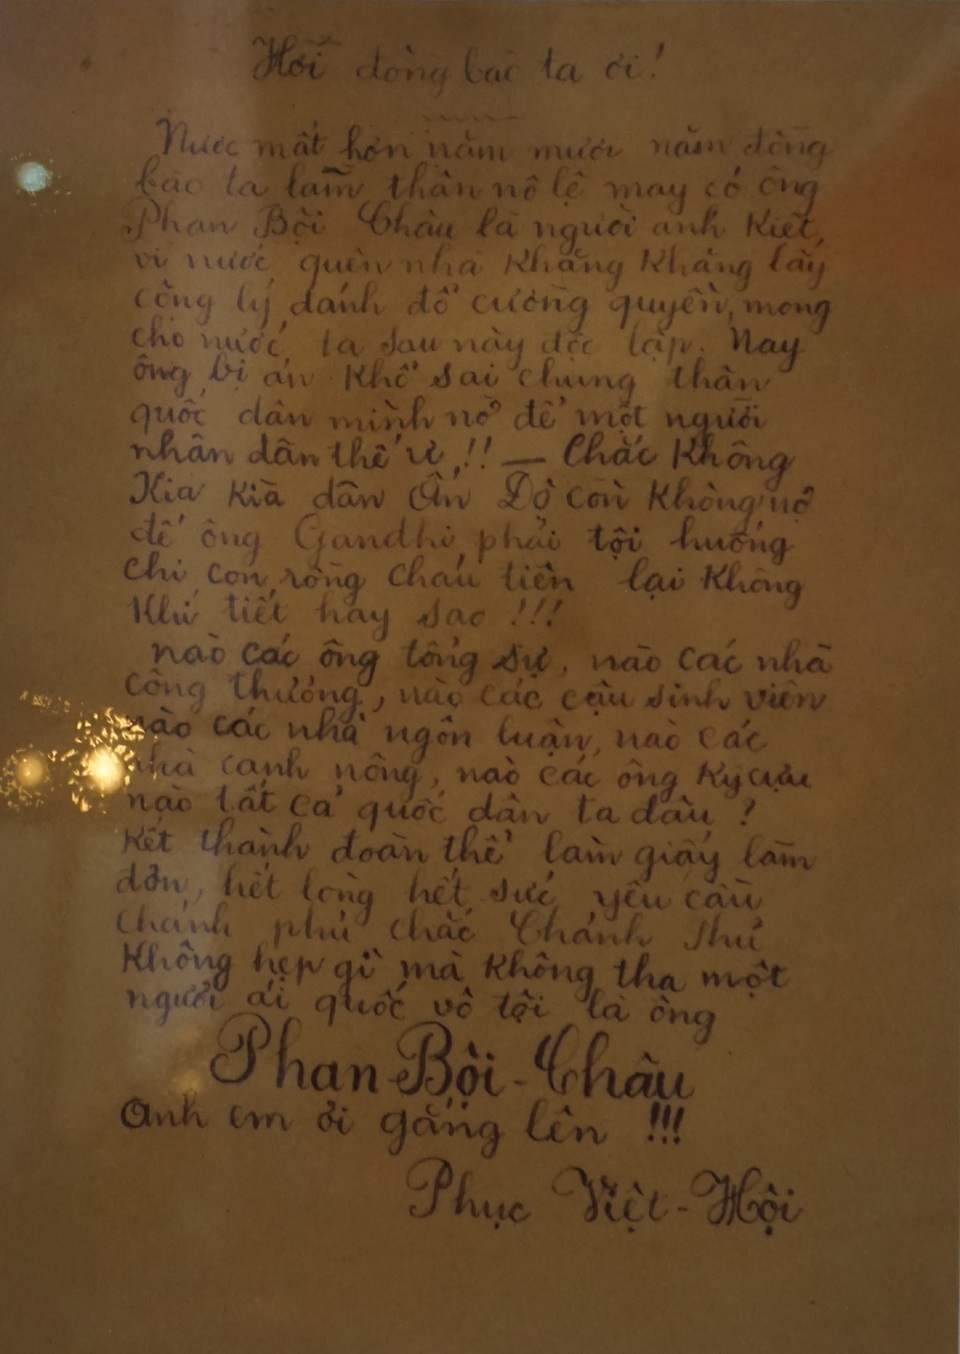 Hỡi đồng bào ta ơi!
Nước mất hơn năm mươi năm đồng
bào ta làm thân nô lệ may có ông
Phan Bội Châu là người anh kiệt,
vì nước quên nhà khăng khăng lấy
công lý đánh đổ cường quyền, mong
cho nước ta sau này độc lập. Nay
ông bị án khổ sai chung thân
quốc dân mình nở để một người
nhân dân thế ư!! — Chắc không
Kia kìa dân Ấn Độ còn không nở
để ông Gandhi phải tội huống
chi con rồng cháu tiên lại không
khí tiết hay sao!!!
nào các ông tổng sự, nào các nhà
công thương, nào các cậu sinh viên
nào các nhà ngôn luận, nào các
nhà canh nông, nào các ông kỳ cựu
nào tất cả quốc dân ta đâu?
kết thành đoàn thể làm giấy làm
đơn, hết lòng hết sức yêu cầu
chánh phủ chắc Chánh Phủ
không hẹp gì mà không tha một
người ái quốc vô tội là ông
Phan-Bội-Châu
Anh em ơi gắng lên!!!
Phục Việt-Hội